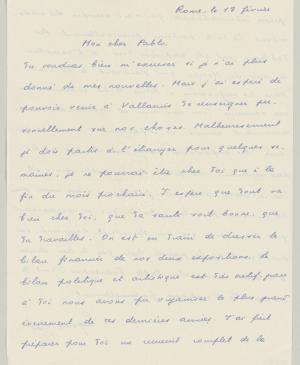 Rome, le 18 février
Mon cher Pablo.
Tu voudras bien m'excuser si je n'ai plus
donné de mes nouvelles. Mais j'ai espéré de
pouvoir venir à Vallauris te renseigner per-
sonellement sur nos choses. Malheureusement
je dois partir à l'étranger pour quelques se-
maines, je ne pourrai être chez toi que à la
fin du mois prochain. J'espère que tout va
bien chez toi, que ta santé soit bonne, que
tu travailles. On est en train de dresser le
bilan financier de nos deux expositions. Le
bilan politique et artistique est très actif, grace
à toi nous avons pu organiser le plus grand
événement de ces dernières années. J'ai fait
préparer pour toi un recueil complet de la